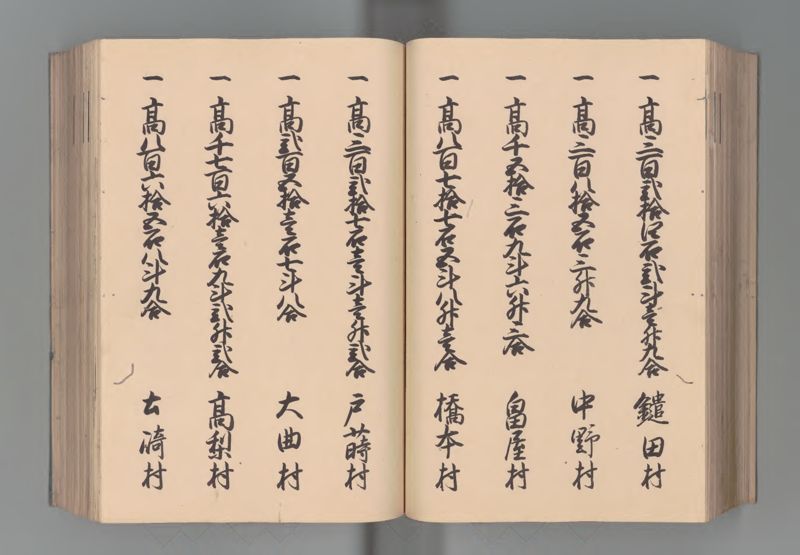 一 高三百弐拾四石弐斗壱升九合 鑓田村
一 高三百八拾五石三升九合 中野村
一 高千五拾三石九斗六升三合 畠屋村
一 高八百七拾七石五斗八升壱合 橋本村
一 高三百弐拾七石壱斗壱升弐合 戸蒔村
一 高弐百五拾壱石七斗八合 大曲村
一 高千七百六拾壱石九斗弐升弐合 高梨村
一 高八百六拾五石八斗九合 崎村